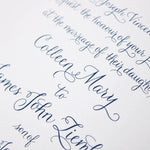 Joseph Vincent
request the honour of your
at the marriage of their daughter
Colleen Mary
to
James John
son of